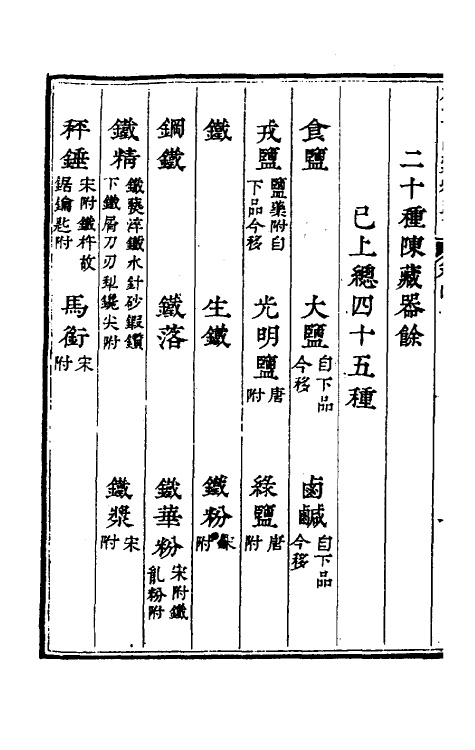 二十種陳藏器餘
已上總四十五種
食鹽　大鹽自下品今移　鹵鹹自下品今移
戎鹽鹽藥附自下品今移　光明鹽唐附　綠鹽唐附
鐵　生鐵　鐵粉宋附
鋼鐵　鐵落　鐵華粉宋附鐵胤粉附
鐵精鐵爇淬鐵水針砂鍜鑕下鐵屑刀刃犁鑱尖附　鐵漿宋附
秤錘宋附鐵杵故鋸鑰匙附　馬銜宋附